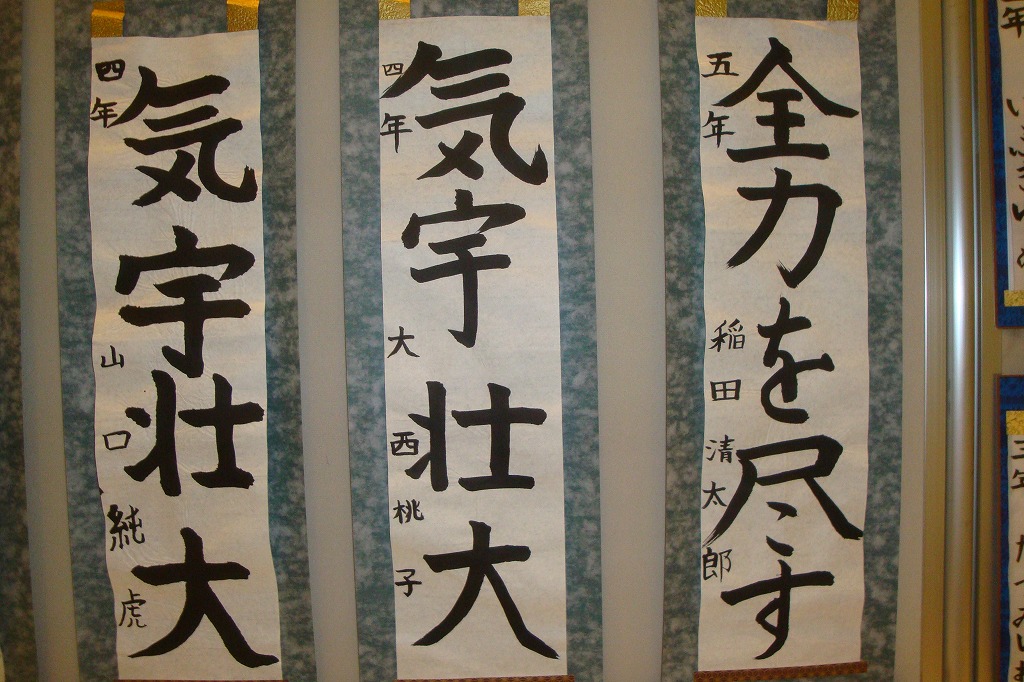 全力を尽す
五年 稲田清太郎
気宇壮大
四年 大西桃子
気宇壮大
四年 山口純虎
三年